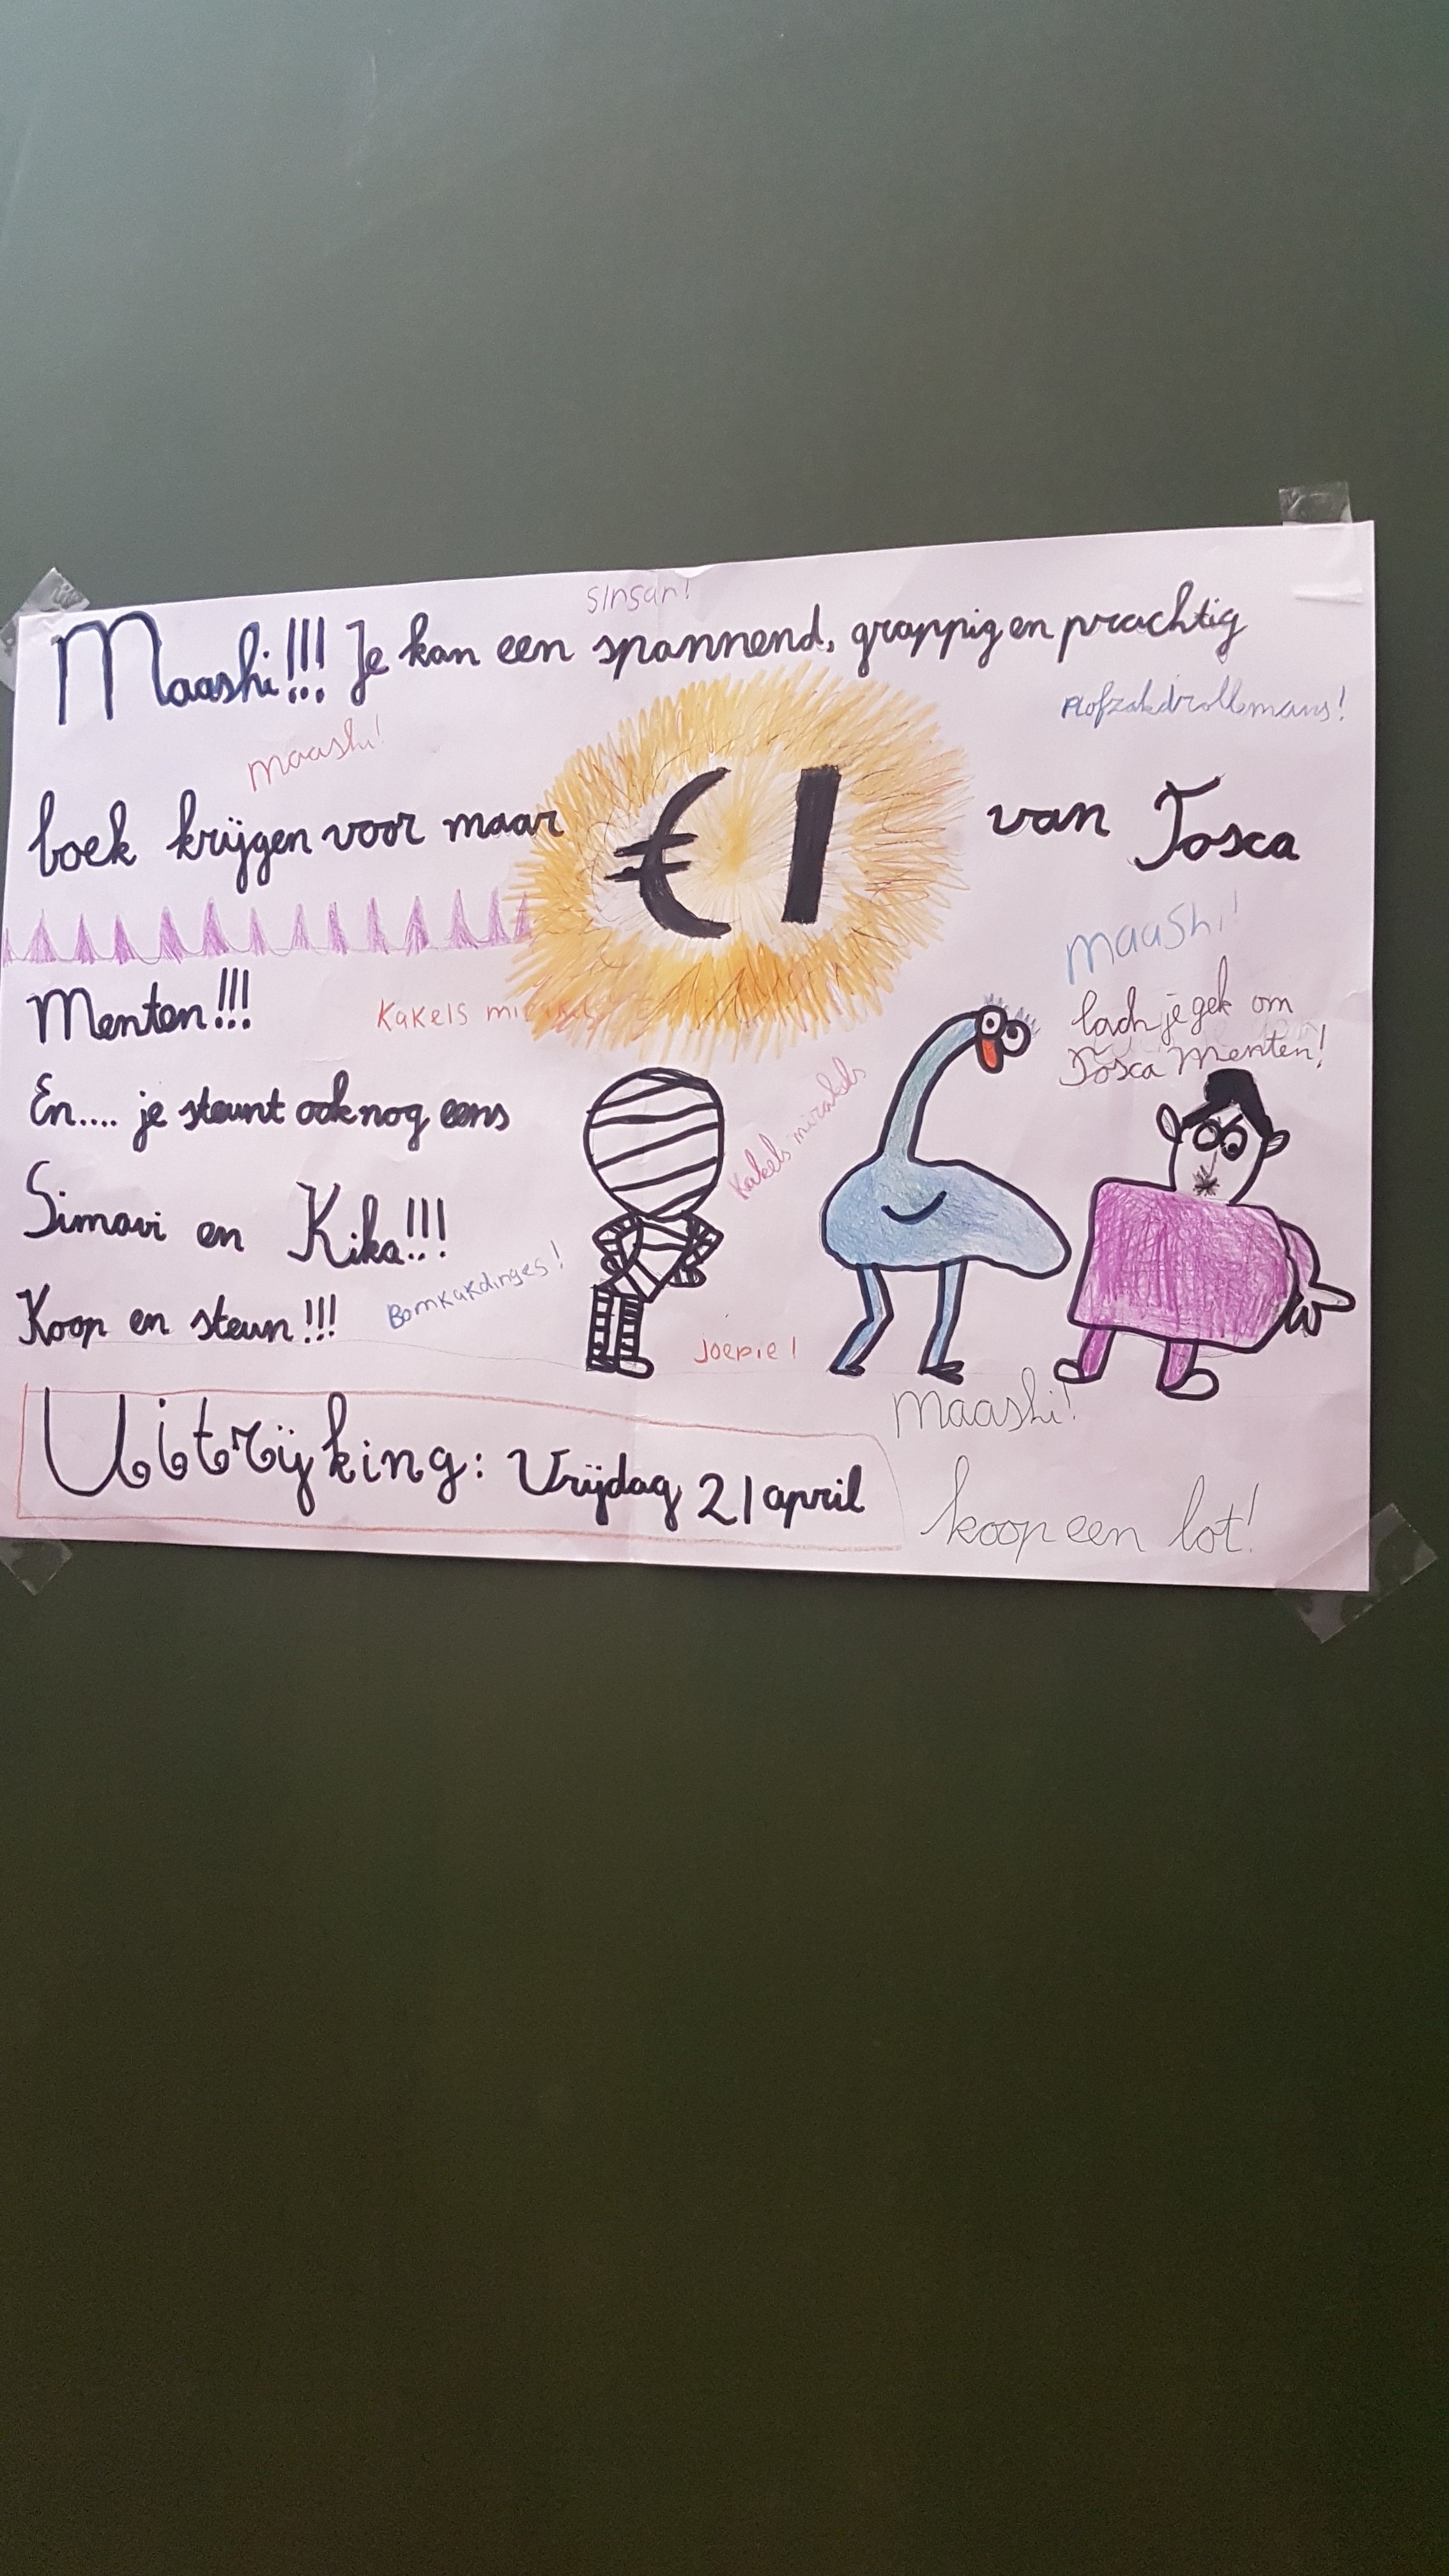 sinsan!
Maashi!!! Je kan een spannend, grappig en prachtig
Plofzakdrollemans!
maashi!
boek krijgen voor maar €1 van Tosca
Maashi!
Menten!!!
Kakels
lach je gek om
Tosca Menten!
En.... je steunt ook nog eens
Kakels mirakels
Simavi en Kika!!!
Bomkakdinges!
Koop en steun!!!
Joepie!
Maashi!
Uitrijking: Vrijdag 21 april
koop een lot!